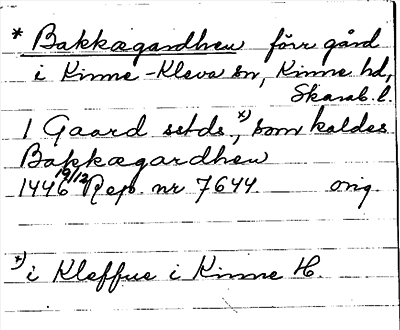 * Bakkægardhen förr gård
i Kinne-Kleva sn, Kinne hd,
Skarab. l.
1 Gaard sstds.,ˣ⁾ som kaldes
Bakkægardhen
1446 19/12 Rep. nr 7644 orig.
x) i Kleffue i Kinne H.